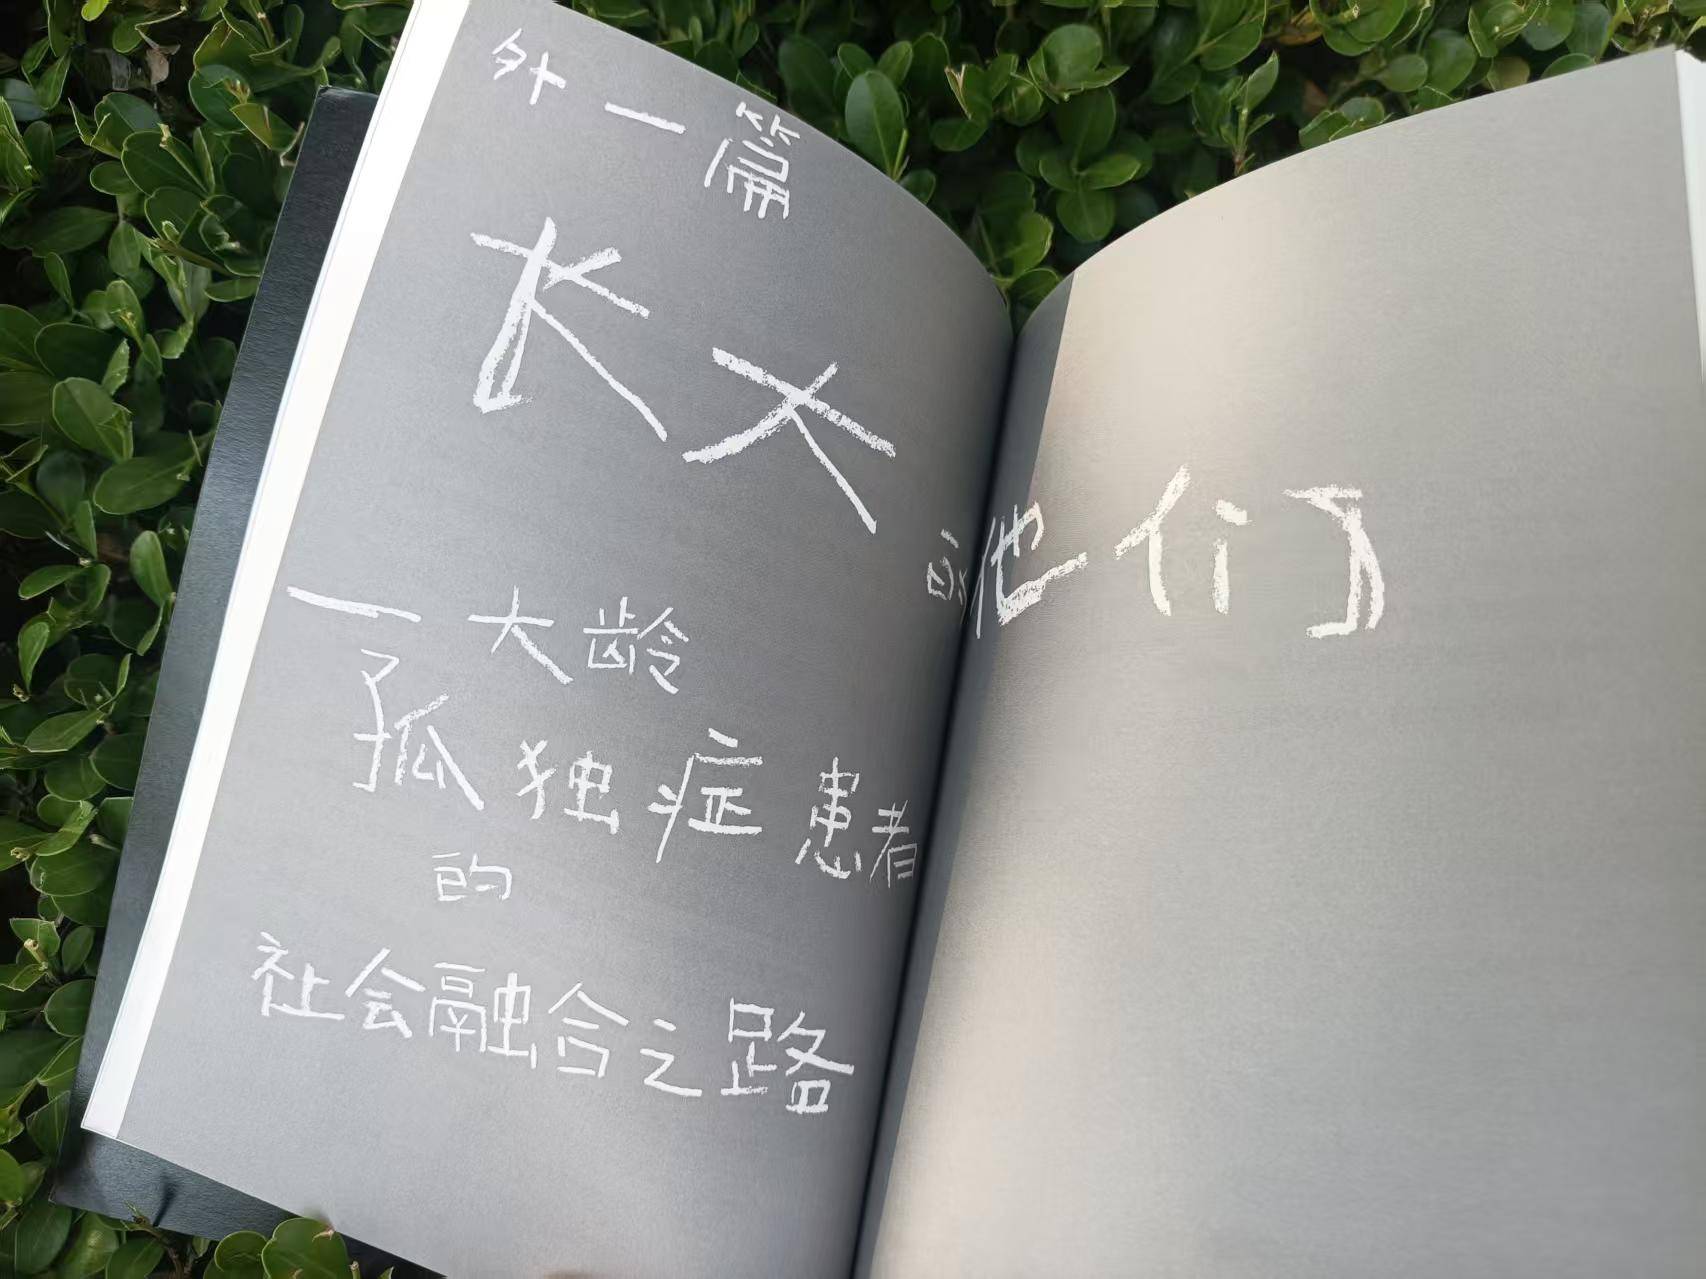 外一篇
长大的他们
一大龄
孤独症患者
的
社会融合之路